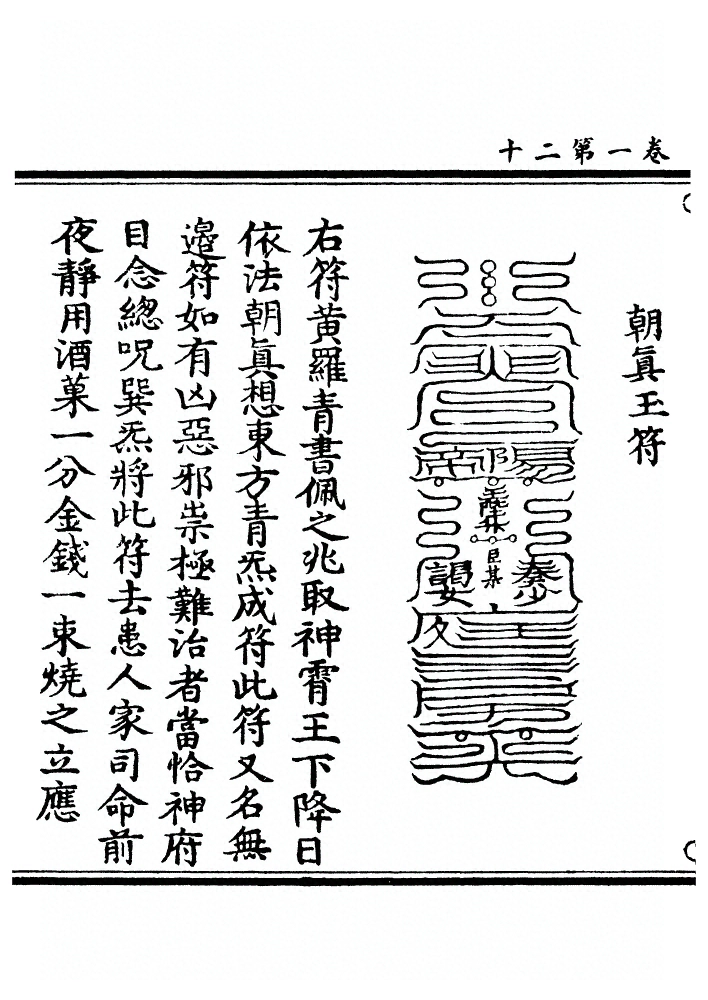 十二第一卷
朝眞玉符
陽
帝
臣某
秦少
謁
及
右符黃羅青書佩之兆取神霄王下降日
依法朝眞想東方青炁成符此符又名無
邉符如有凶惡邪祟極難治者當恰神府
目念緫呪巽炁將此符去患人家司命前
夜靜用酒菓一分金錢一束燒之立應